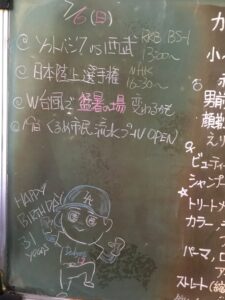 7/6(日)
◎ソフトバンクVS西武 RKB BS-1
13:00〜
◎日本陸上選手権 NHK
16:30〜
◎W台風で猛暑の場 変わるかも
くるめ市民流水プールOPEN
HAPPY
BIRTHDAY
31
カ
小
男前
顔
えり
ビューティ
シャンプー
★
トリートメ
カラー、
パーマ、
ア
ストレート(